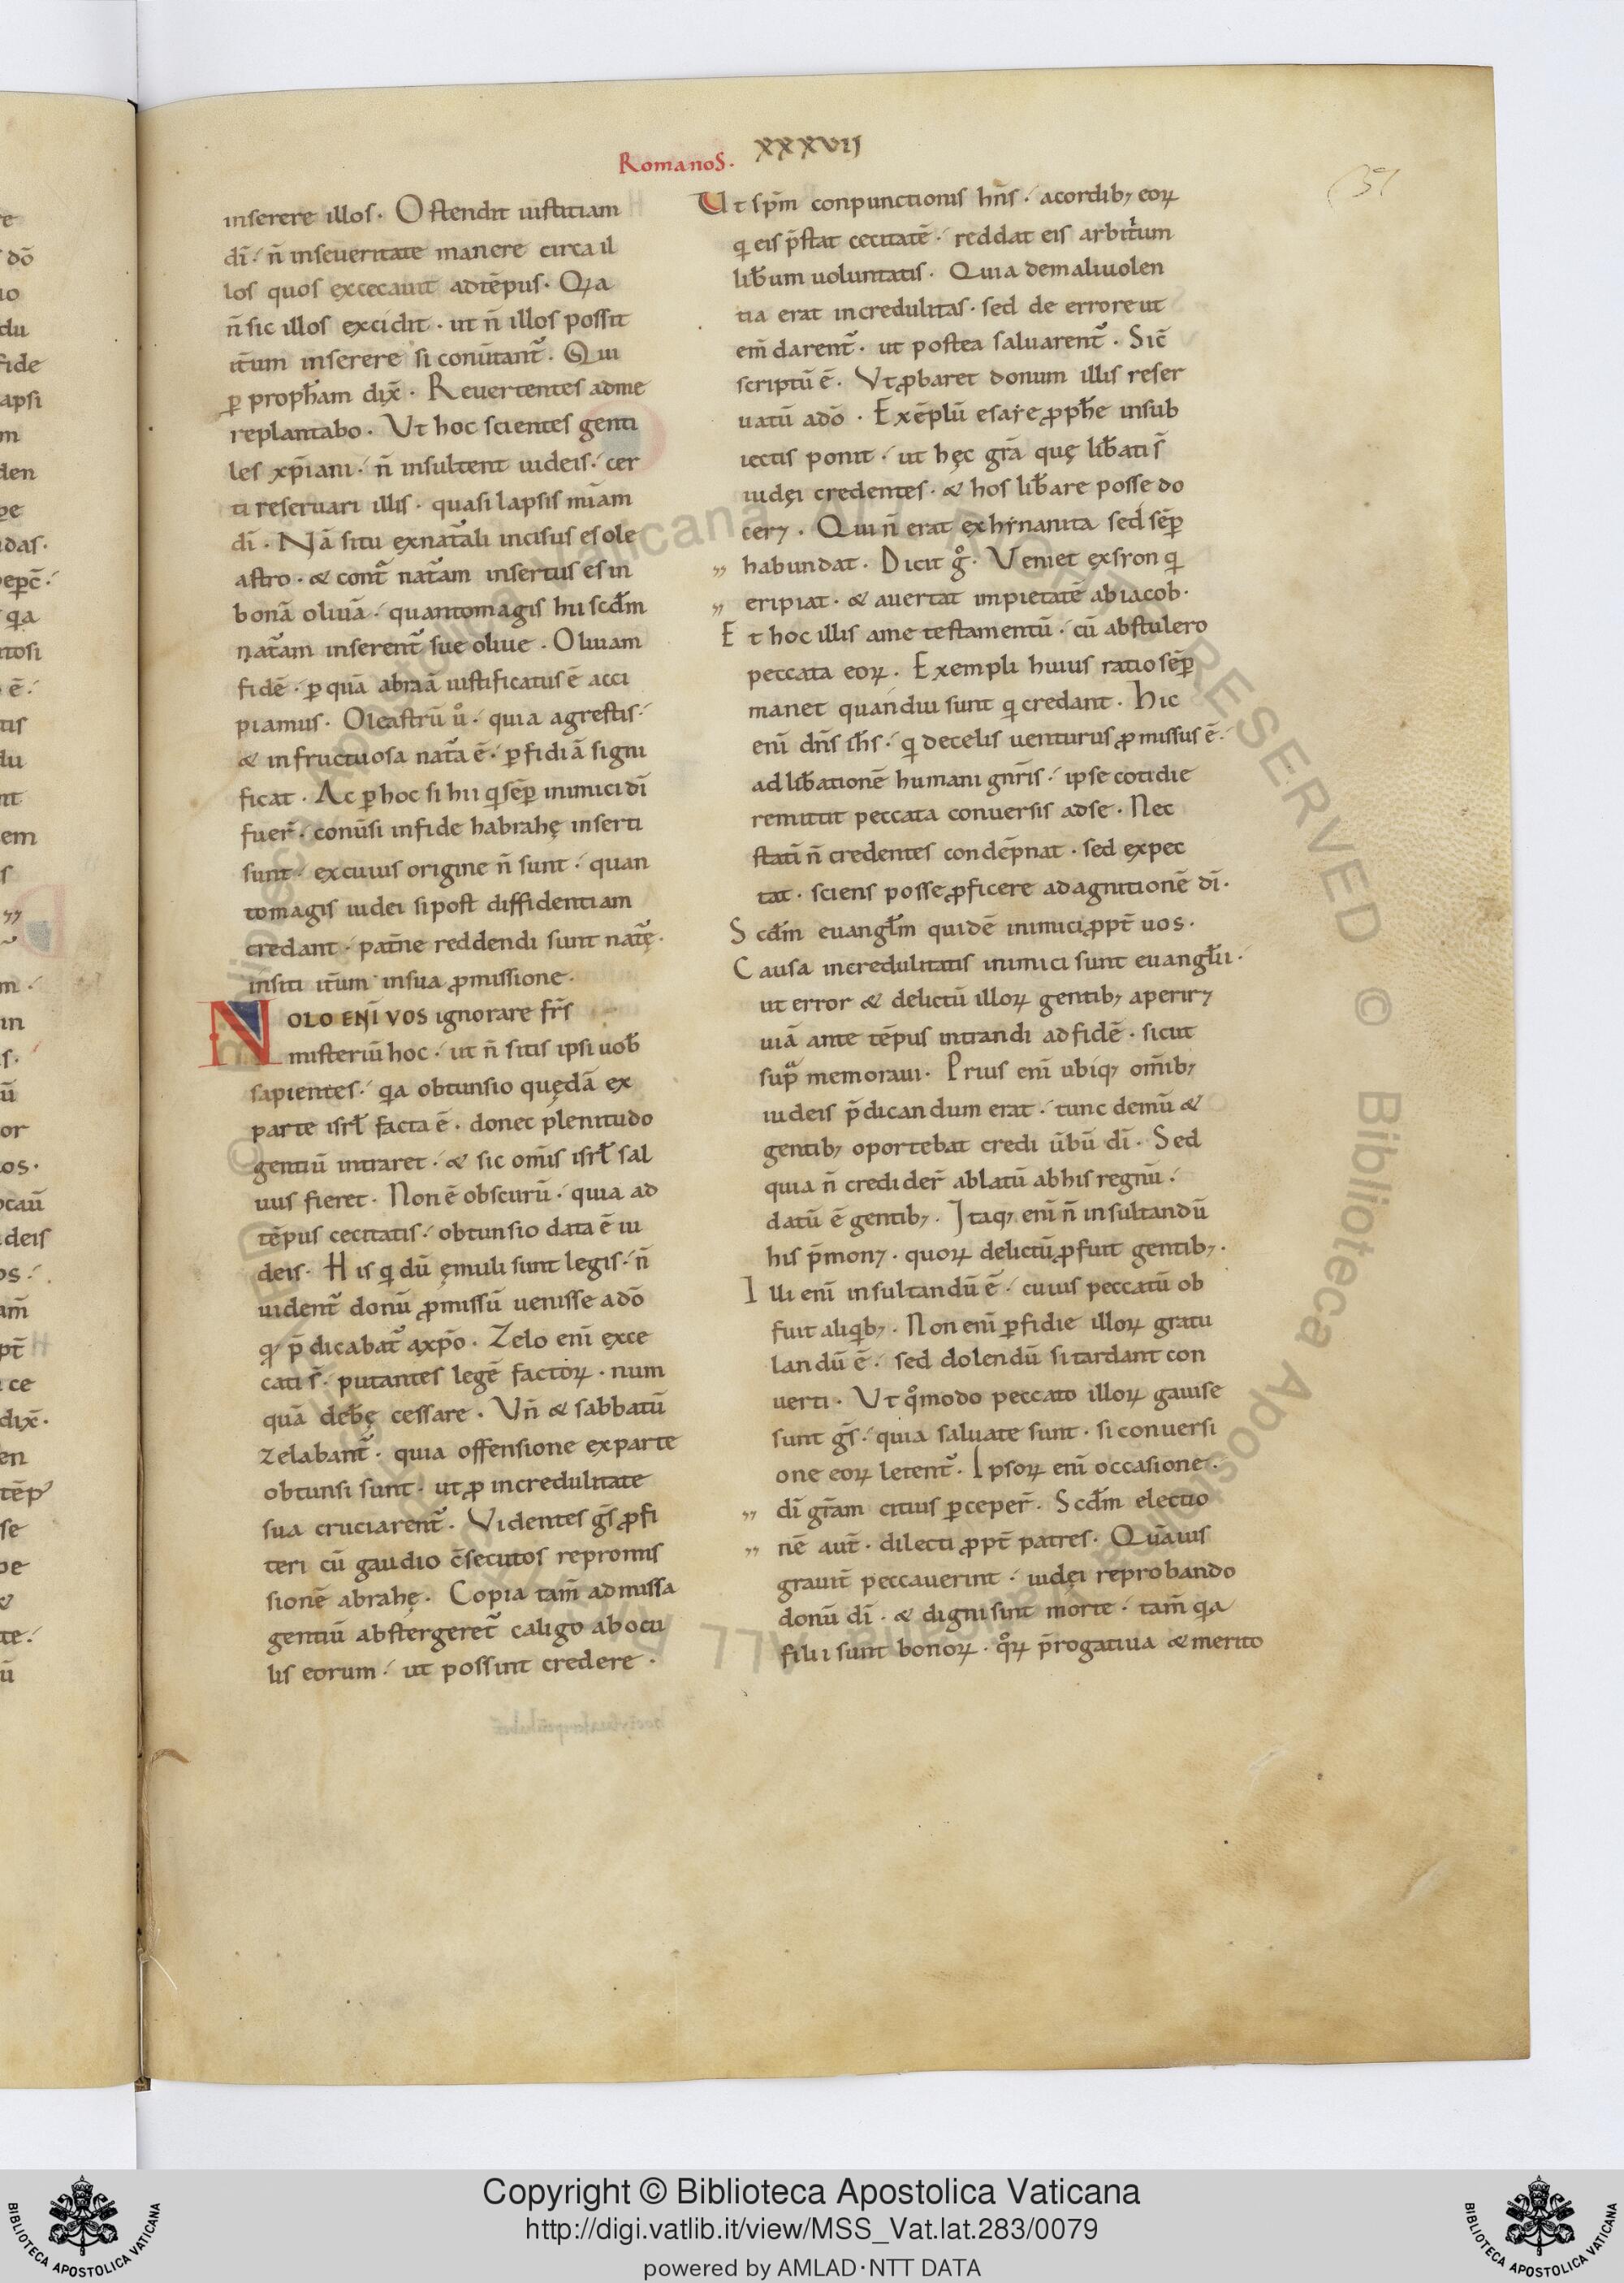 Romanos. xxxvii
inserere illos. Ostendit iustitiam
dī. n̄ inseueritate manere circa il
los quos excecauit adtēpus. Qꝛa
n̄ sic illos excidit. ut n̄ illos possit
it̄um inserere si conūtant᷑. Qui
ꝑ proph̄am dix̄. Reuertentes adme
replantabo. Ut hoc scientes genti
les xp̄iani. n̄ insultent iudeis. cer
ti reseruari illis. quasi lapsis mīam
dī. Nā situ exnat᷑ali incisus es ole
astro. & cont᷑ nat᷑am insertus es in
bonā oliuā. quantomagis hii scd̄m
nat᷑am inserent᷑ sue oliue. Oliuam
fidē. ꝑ quā abraā iustificatus ē acci
piamus. Oleastrū uͦ. quia agrestis
& infructuosa nat᷑a ē. ꝑfidiā signi
ficat. Ac ꝑ hoc si hii q̇ sēꝑ inimici dī
fuer̄. conūsi infide habrahę inserti
sunt. excuius origine n̄ sunt. quan
tomagis iudei sipost diffidentiam
credant. pat̄ne reddendi sunt nat᷑ę.
insiti it̄um insua ꝓmissione.
NOLO ENĪ VOS ignorare fr̄s
misteriū hoc. ut n̄ sitis ipsi uob̄
sapientes. qa obtunsio quędā ex
parte isrl̄ facta ē. donec plenitudo
gentiū intraret. & sic om̄is isrl̄ sal
uus fieret. Non ē obscurū. quia ad
tēpus cecitatis. obtunsio data ē iu
deis. His q̇ dū ęmuli sunt legis. n̄
uident᷑ donū ꝓmissū uenisse adō
qͥ p̄dicabat᷑ axp̄o. Zelo enī exce
cati s̄. putantes legē factoꝝ. num
quā deb̄ę cessare. Vn̄ & sabbatū
zelabant᷑. quia offensione exparte
obtunsi sunt. ut ꝓ incredulitate
sua cruciarent᷑. Videntes gs̄ ꝓfi
teri cū gaudio c̄secutos repromis
sionē abrahę. Copia tam̄ admissa
gentiū abstergeret᷑ caligo abocu
lis eorum. ut possint credere.
Ut sp̄m conpunctionis hn̄s. acordibꝫ eoꝝ
q̇ eis p̄stat cecitatē. reddat eis arbitͥum
lib̄um uoluntatis. Quia demaliuolen
tia erat incredulitas. sed de errore ut
em̄darent᷑. ut postea saluarent᷑. Sic̄
scriptū ē. Vt ꝓbaret donum illis reser
uatū adō. Exēplū esaię ꝓph̄e insub
iectis ponit. ut hęc gr̄a quę lib̄ati s̄
iudęi credentes. & hos lib̄are posse do
cerꝫ. Qui n̄ erat exhinanita sed sēꝑ
habundat. Dicit gͦ. Veniet exsron q̇
eripiat. & auertat impietatē abiacob.
Et hoc illis ame testamentū. cū abstulero
peccata eoꝝ. Exempli huius ratio sēꝑ
manet quandiu sunt q̇ credant. Hic
enī dn̄s ih̄s. q̇ decelis uenturus ꝓmissus ē.
ad lib̄ationē humani gn̄ris. ipse cotidie
remittit peccata conuersis adse. Nec
statī n̄ credentes condēpnat. sed expec
tat. sciens posse ꝓficere ad agnitionē dī.
Scd̄m euangl̄m quidē inimici ꝓpt̄ uos.
Causa incredulitatis inimici sunt euangl̄ii.
ut error & delictū illoꝝ gentibꝫ aperirꝫ
uiā ante tēpus intrandi ad fidē. sicut
supͣ memoraui. Prius enī ubiqꝫ om̄ibꝫ
iudeis p̄dicandum erat. tunc demū &
gentibꝫ oportebat credi ūbū dī. Sed
quia n̄ credider̄ ablatū abhis regnū.
datū ē gentibꝫ. Itaqꝫ enī n̄ insultandū
his p̄monꝫ. quoꝝ delictū ꝓfuit gentibꝫ.
Illi enī insultandū ē. cuius peccatū ob
fuit aliq̇bꝫ. Non enī ꝑfidie illoꝝ gratu
landū ē. sed dolendū si tardant con
uerti. Ut qͦmodo peccato illoꝝ gauise
sunt gs̄. quia saluate sunt. si conuersi
one eoꝝ letent᷑. Ipsoꝝ enī occasione.
dī gr̄am citius ꝑceper̄. Scd̄m electio
nē aut̄. dilecti ꝓpt̄ patres. Quāuis
grauit̄ peccauerint. iudęi reprobando
donū dī. & digni sint morte. tam̄ qa
filii sunt bonoꝝ. qͦꝝ p̄rogatiua & merito
Copyright © Biblioteca Apostolica Vaticana
http://digi.vatlib.it/view/MSS_Vat.lat.283/0079
powered by AMLAD·NTT DATA
BIBLIOTECA APOSTOLICA VATICANA
BIBLIOTECA APOSTOLICA VATICANA